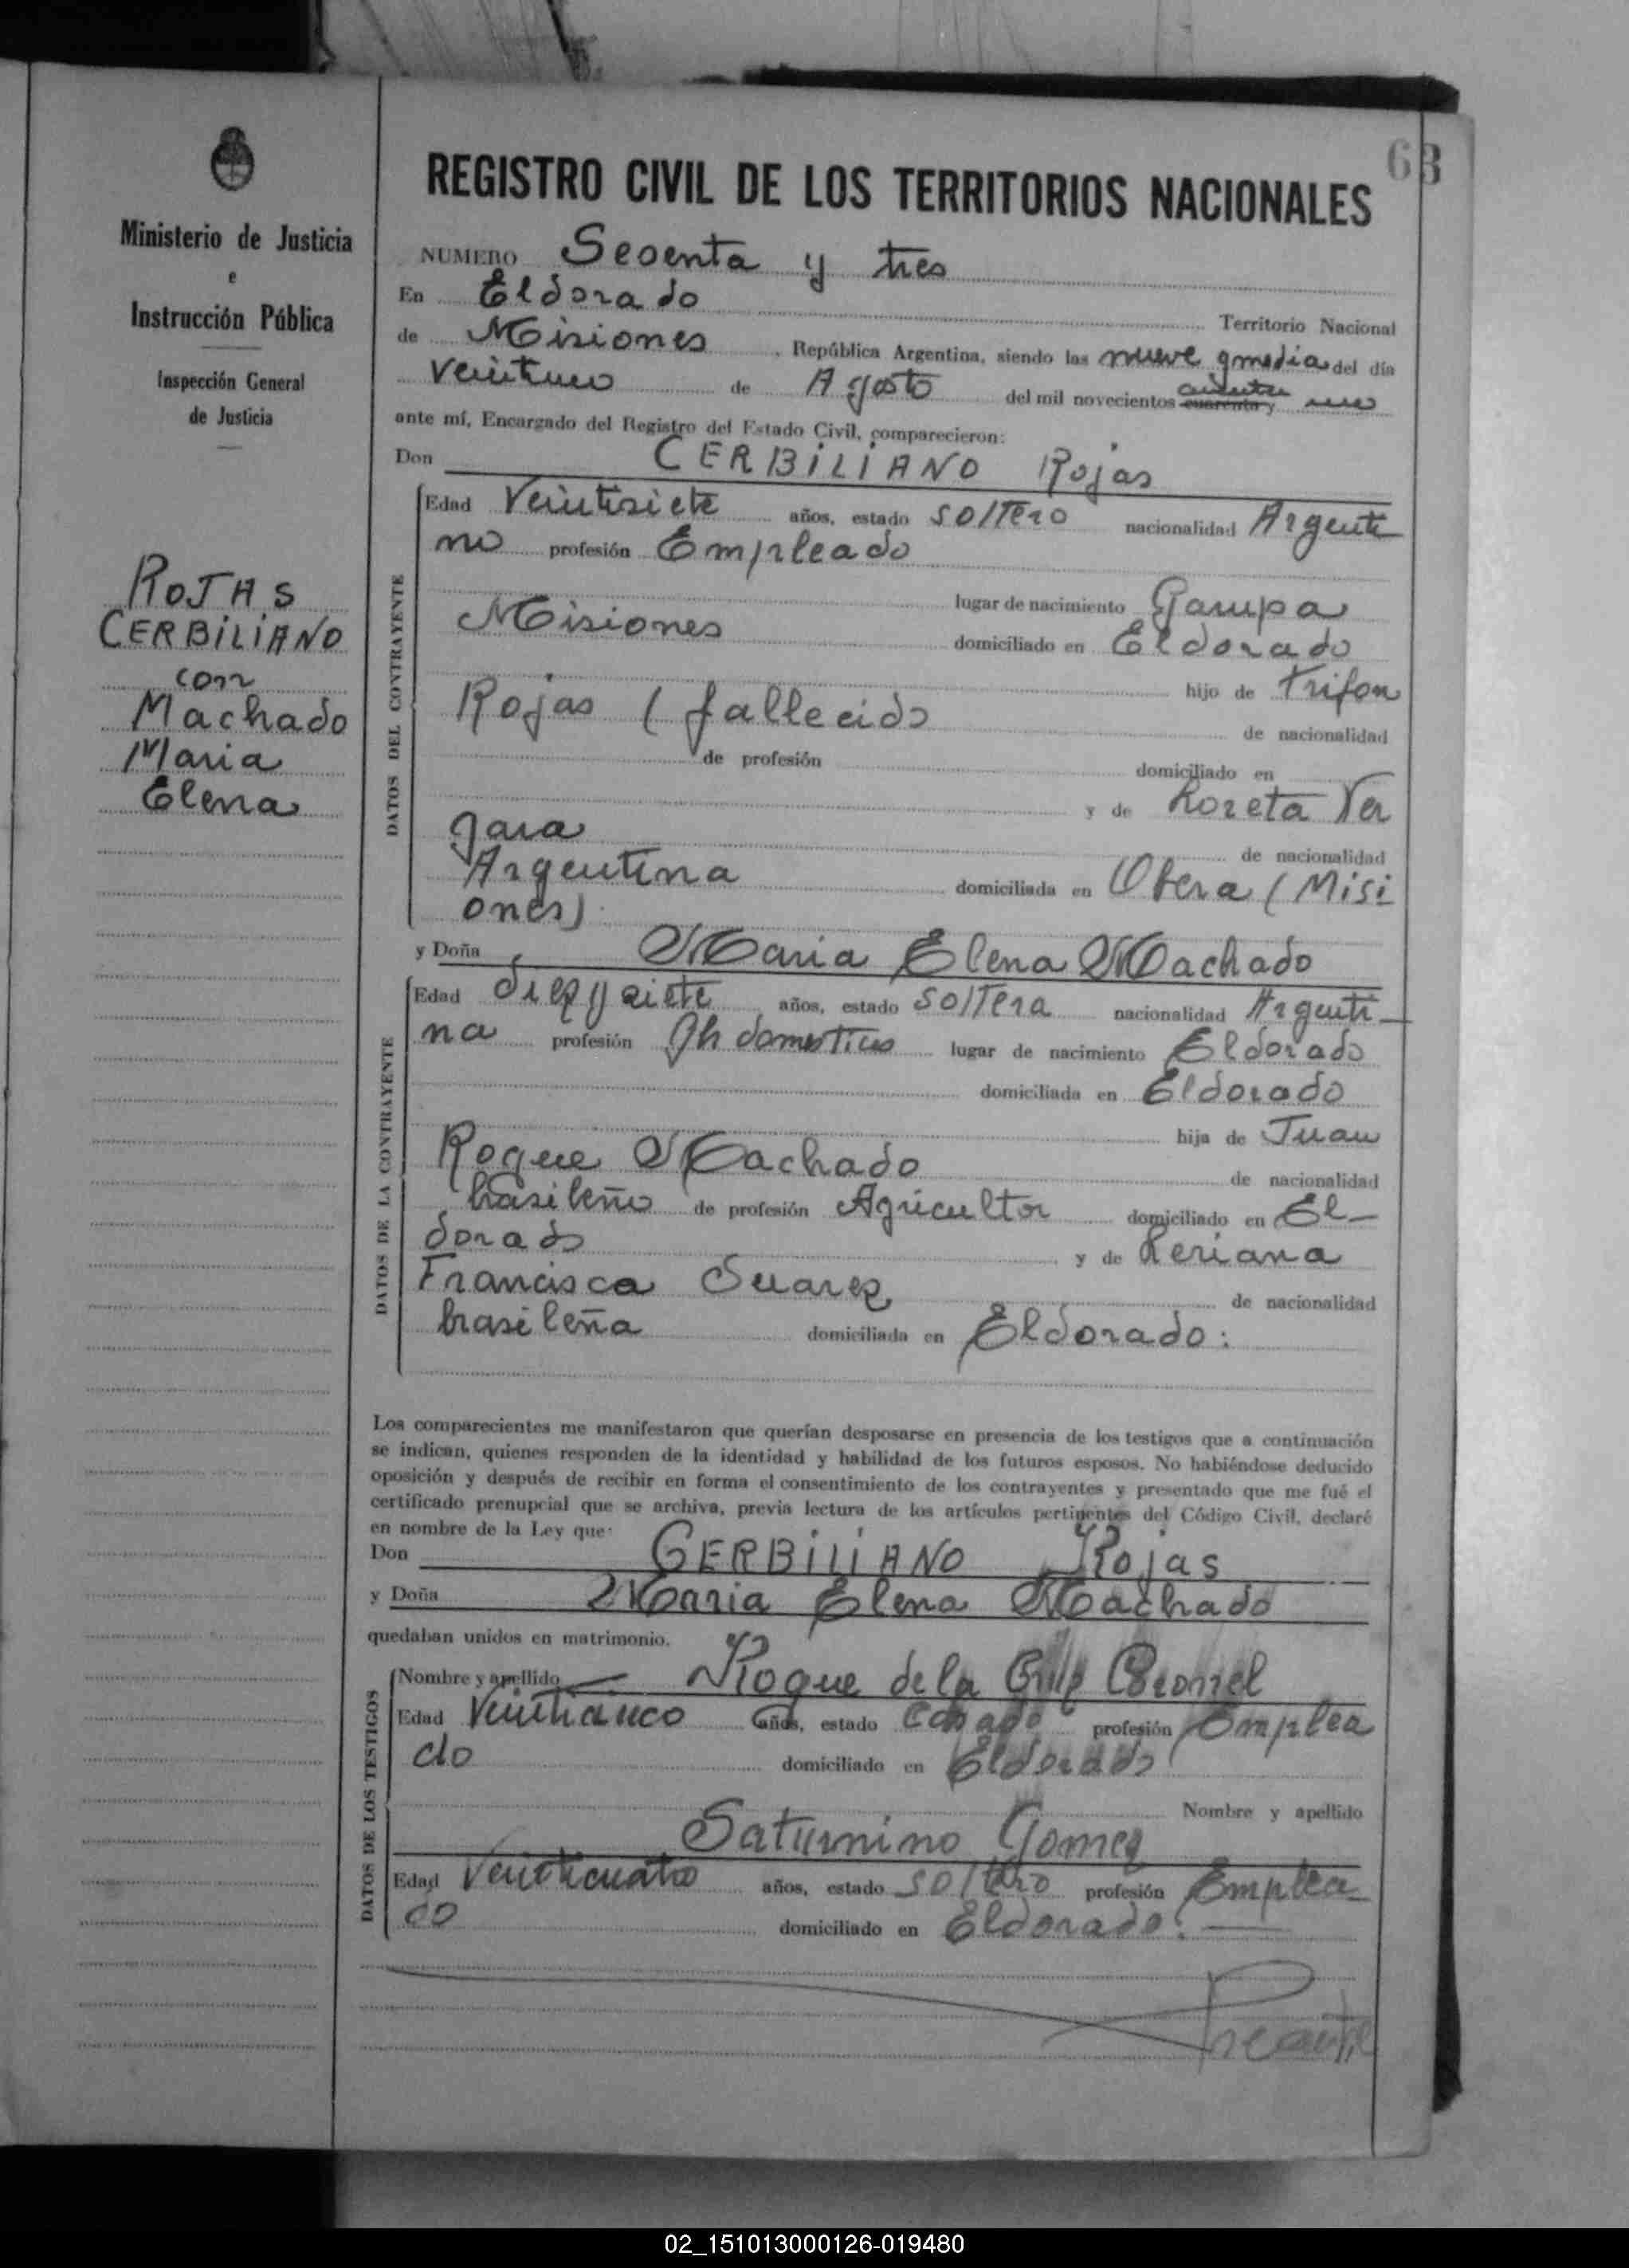 63
REGISTRO CIVIL DE LOS TERRITORIOS NACIONALES
Ministerio de Justicia
e
Instrucción Pública
Inspección General
de Justicia
ROJAS
CERBILIANO
con
Machado
Maria
Elena
NUMERO Sesenta y tres
En Eldorado Territorio Nacional
de Misiones, República Argentina, siendo las nueve y media del día
Veintiuno de Agosto del mil novecientos cuarenta y uno
ante mí, Encargado del Registro del Estado Civil, comparecieron:
Don CERBILIANO Rojas
DATOS DEL CONTRAYENTE
Edad Veintisiete años, estado soltero nacionalidad Argenti
no profesión Empleado
lugar de nacimiento Garupa
Misiones domiciliado en Eldorado
hijo de Trifon
Rojas (fallecido de nacionalidad
de profesión domiciliado en
y de Loreta Ver
gara de nacionalidad
Argentina domiciliada en Obera (Misi
ones)
y Doña Maria Elena Machado
DATOS DE LA CONTRAYENTE
Edad diez y siete años, estado soltera nacionalidad Argenti
na profesión Qh domesticos lugar de nacimiento Eldorado
domiciliada en Eldorado
hija de Juan
Roque Machado de nacionalidad
brasileño de profesión Agricultor domiciliado en El-
dorado y de
Francisca Suarez de nacionalidad
brasileña domiciliada en Eldorado:
Los comparecientes me manifestaron que querían desposarse en presencia de los testigos que a continuación
se indican, quienes responden de la identidad y habilidad de los futuros esposos. No habiéndose deducido
oposición y después de recibir en forma el consentimiento de los contrayentes y presentado que me fué el
certificado prenupcial que se archiva, previa lectura de los artículos pertinentes del Código Civil, declaré
en nombre de la Ley que:
Don CERBILIANO Rojas
y Doña Maria Elena Machado
quedaban unidos en matrimonio.
DATOS DE LOS TESTIGOS
Nombre y apellido Roque de la Cruz Coronel
Edad Veinticinco años, estado Casado profesión Emplea
do domiciliado en Eldorado
Nombre y apellido
Saturnino Gomez
Edad Veinticuatro años, estado soltero profesión Emplea
do domiciliado en Eldorado.
02_151013000126-019480